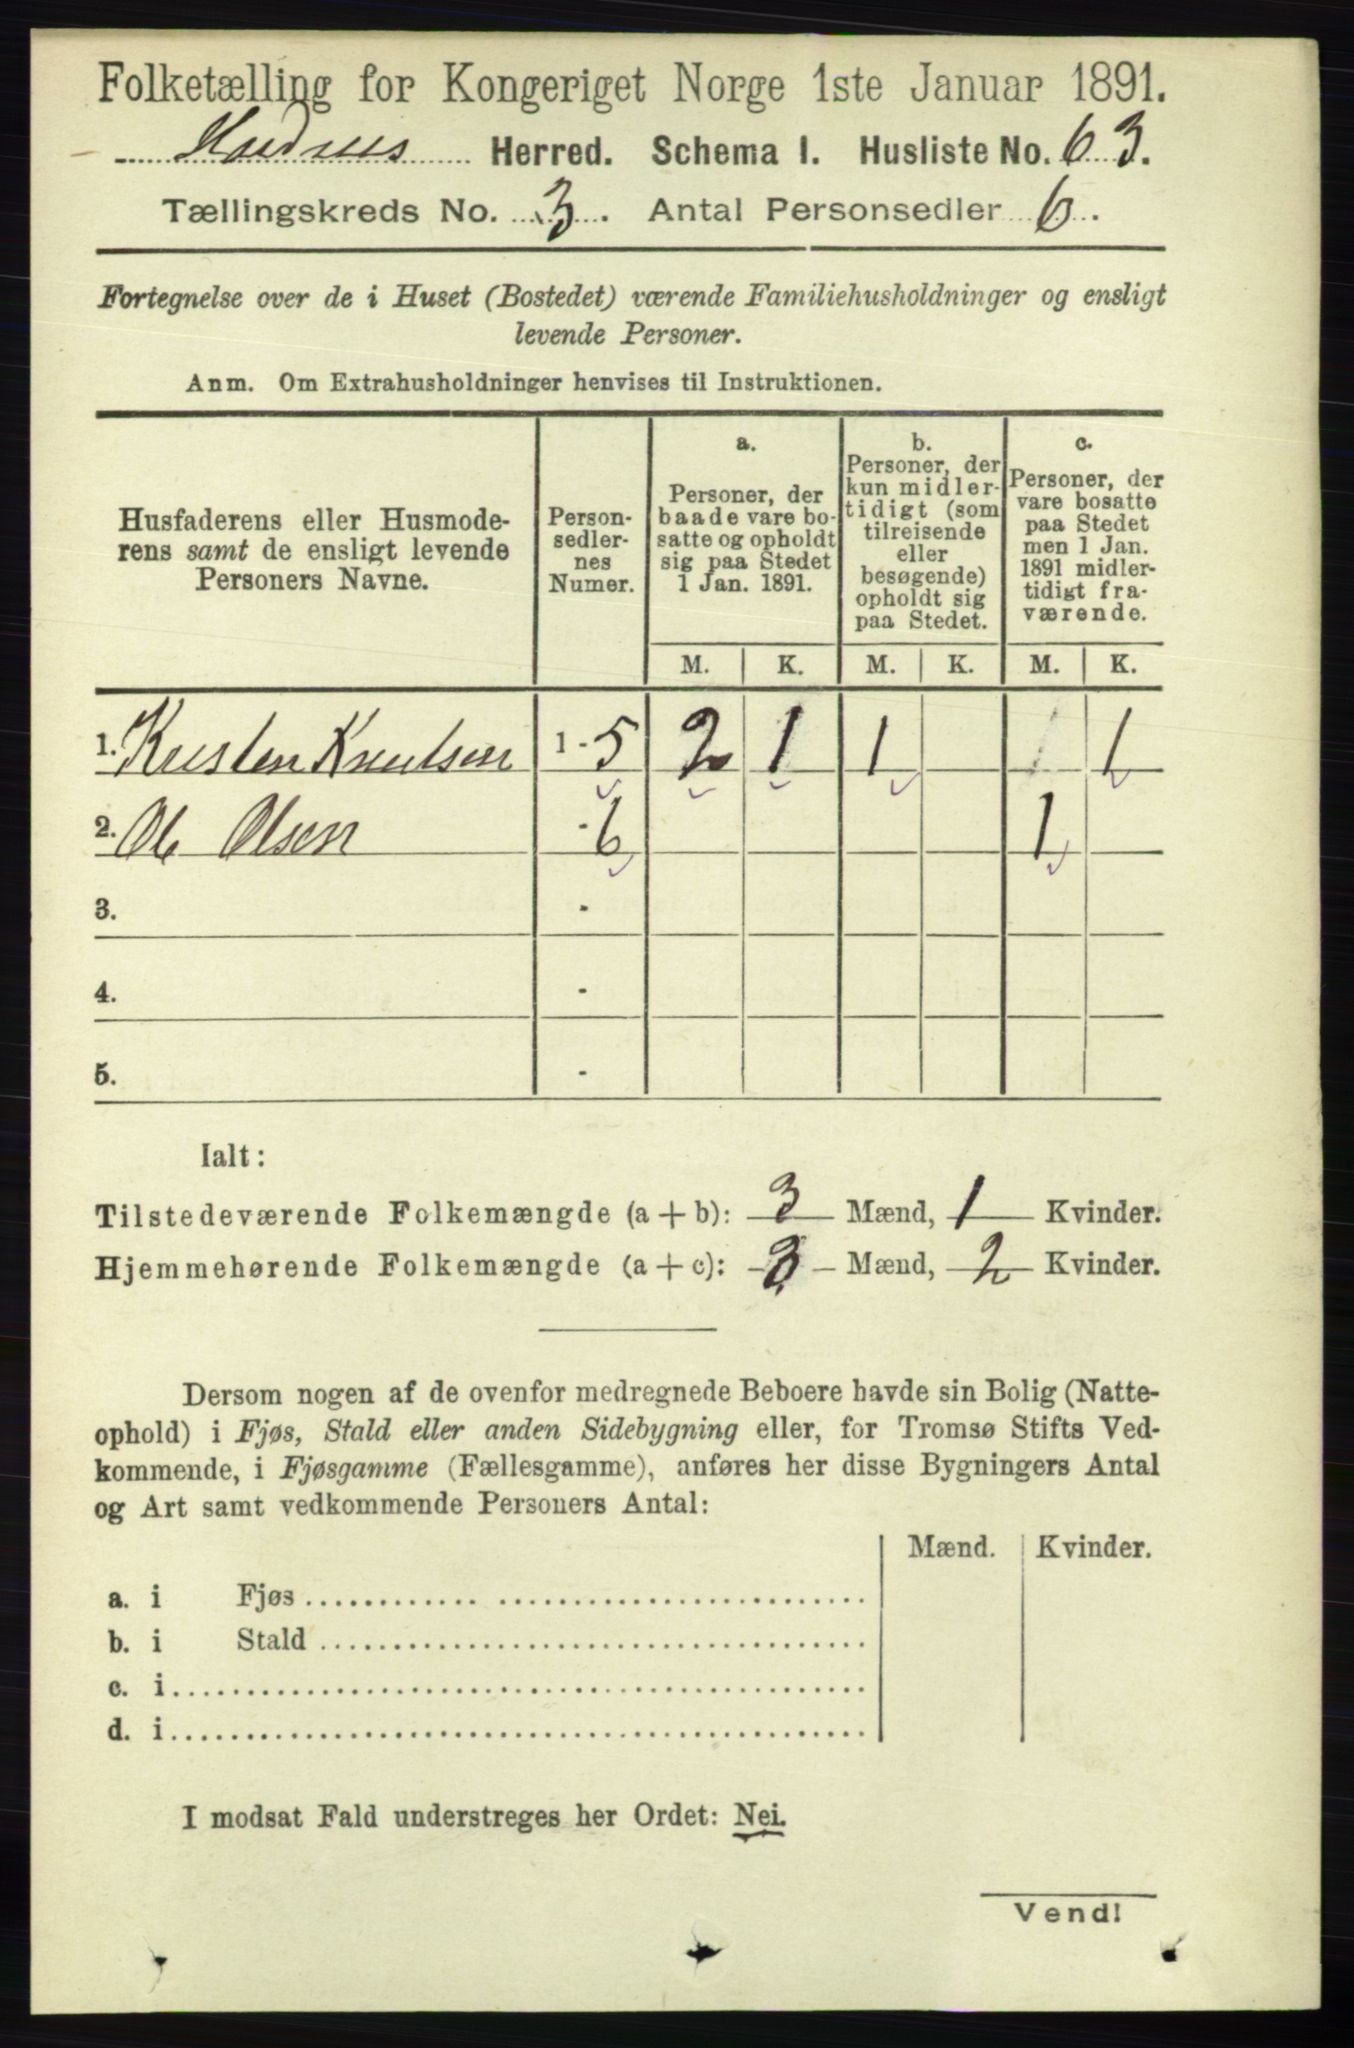 Folketælling for Kongeriget Norge 1ste Januar 1891.
Herred. Schema I. Husliste No. 63.
Tællingskreds No. 3. Antal Personsedler 6.
Fortegnelse over de i Huset (Bostedet) værende Familiehusholdninger og ensligt
levende Personer.
Anm. Om Extrahusholdninger henvises til Instruktionen.
Husfaderens eller Husmode-
rens samt de ensligt levende
Personers Navne.
Person-
sedler-
nes
Numer.
a.
Personer, der
baade vare bo-
satte og opholdt
sig paa Stedet
1 Jan. 1891.
b.
Personer, der
kun midler-
tidigt (som
tilreisende
eller
besøgende)
opholdt sig
paa Stedet.
c.
Personer, der
vare bosatte
paa Stedet
men 1 Jan.
1891 midler-
tidigt fra-
værende.
M. K. M. K. M. K.
1. Kristen Knutsen 1-5 2 1 1 1
2. Ole Olsen -6 1
3. -
4. -
5. -
Ialt:
Tilstedeværende Folkemængde (a + b): 3 Mænd, 1 Kvinder.
Hjemmehørende Folkemængde (a + c): 3 Mænd, 2 Kvinder.
Dersom nogen af de ovenfor medregnede Beboere havde sin Bolig (Natte-
ophold) i Fjøs, Stald eller anden Sidebygning eller, for Tromsø Stifts Ved-
kommende, i Fjøsgamme (Fællesgamme), anføres her disse Bygningers Antal
og Art samt vedkommende Personers Antal:
Mænd. Kvinder.
a. i Fjøs
b. i Stald
c. i
d. i
I modsat Fald understreges her Ordet: Nei.
Vend!